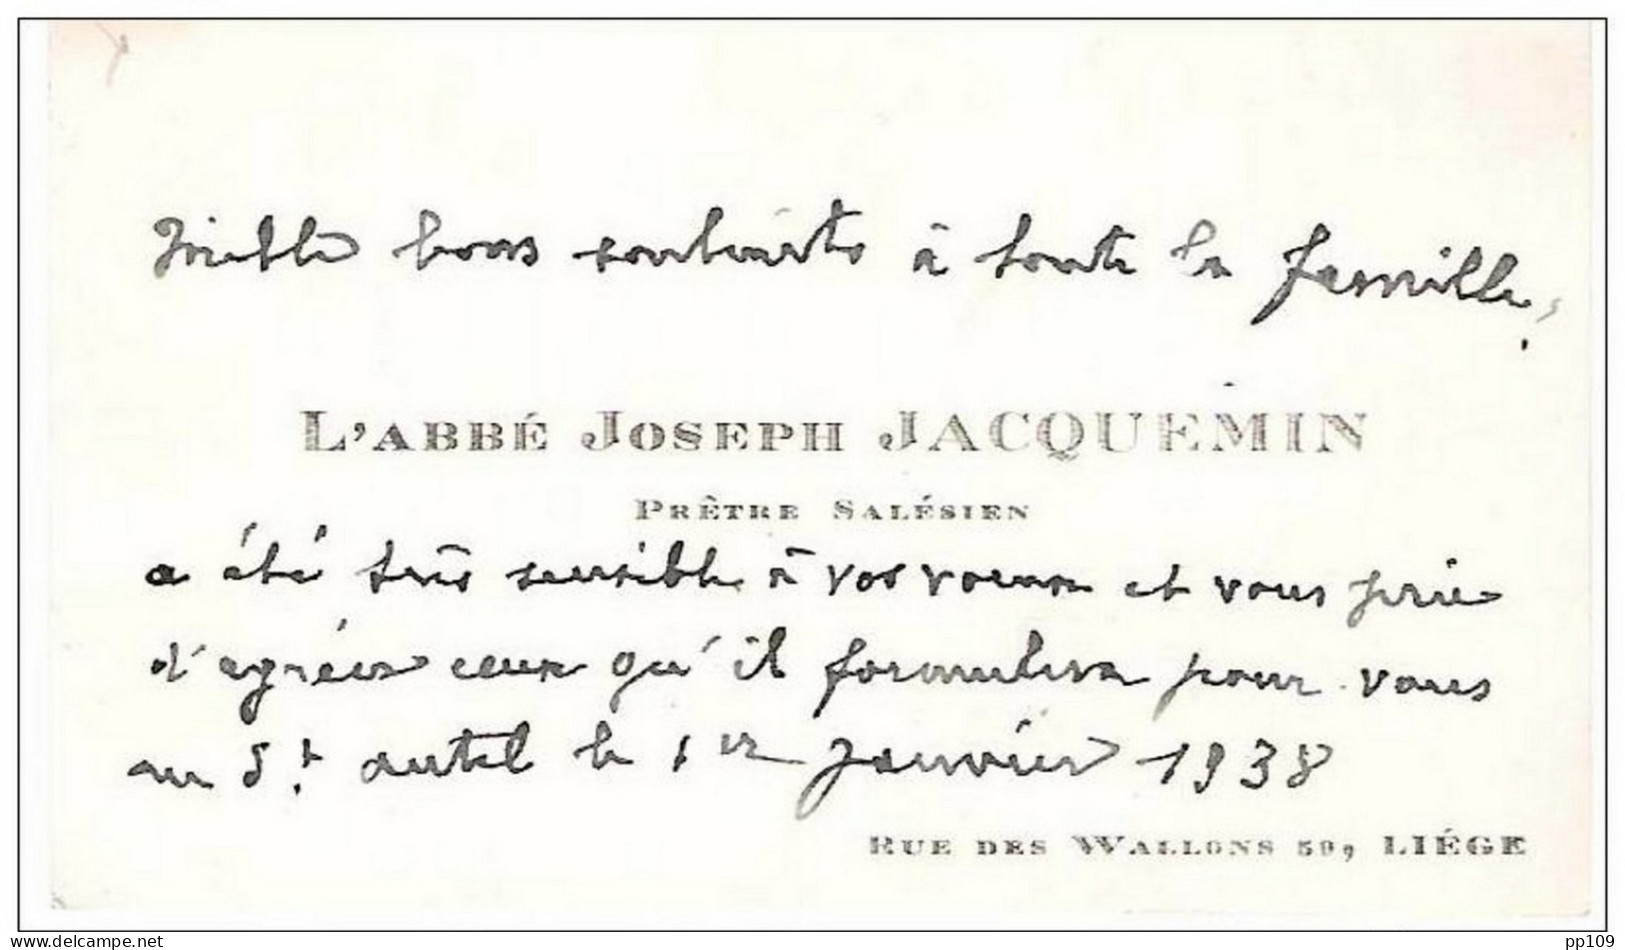 Mille bons souhaits à toute la famille,
L'ABBÉ JOSEPH JACQUEMIN
PRÊTRE SALÉSIEN
a été très sensible à vos voeux et vous prie
d'agréer ceux qu'il formulera pour vous
au St autel le 1er janvier 1938
RUE DES WALLONS 59, LIÉGE
www.delcampe.net
pp109